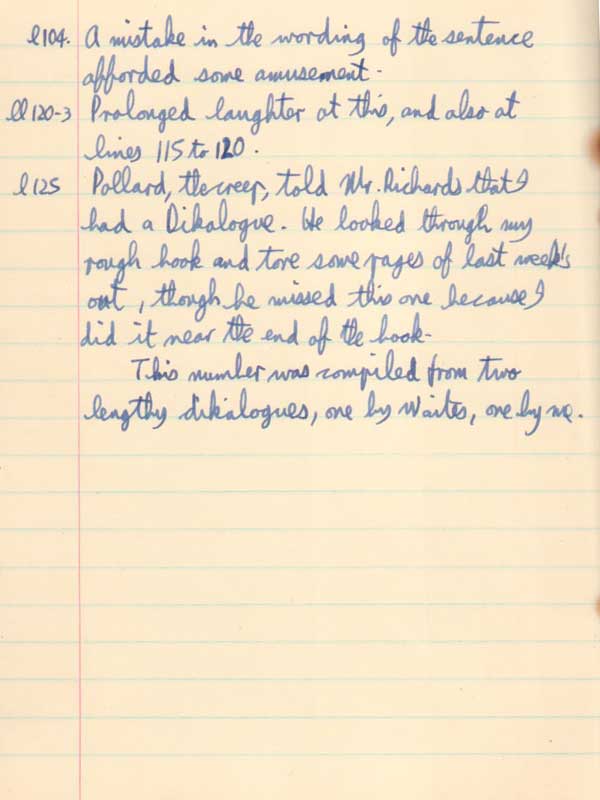 l104. A mistake in the wording of the sentence
afforded some amusement.
ll120-3 Prolonged laughter at this, and also at
lines 115 to 120.
l125 Pollard, the creep, told Mr. Richards that I
had a Dikalogue. He looked through my
rough book and tore some pages of last week's
out, though he missed this one because I
did it near the end of the book.
This number was compiled from two
lengthy dikalogues, one by Waites, one by me.